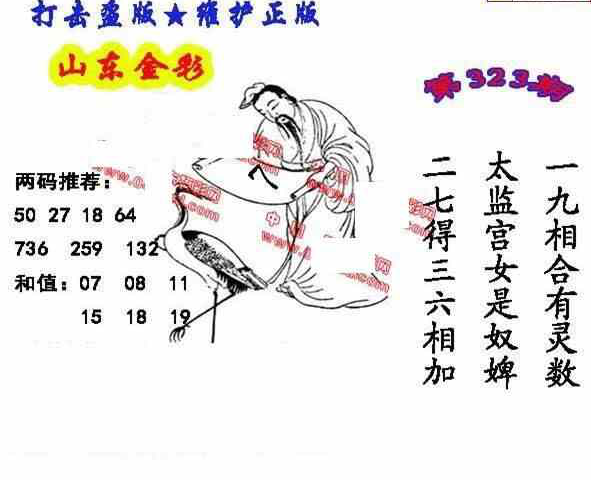 打击盗版★维护正版
山东金彩
第323期
两码推荐：
50 27 18 64
736 259 132
和值：07 08 11
15 18 19
一九相合有灵数
太监宫女是奴婢
二七得三六相加
八